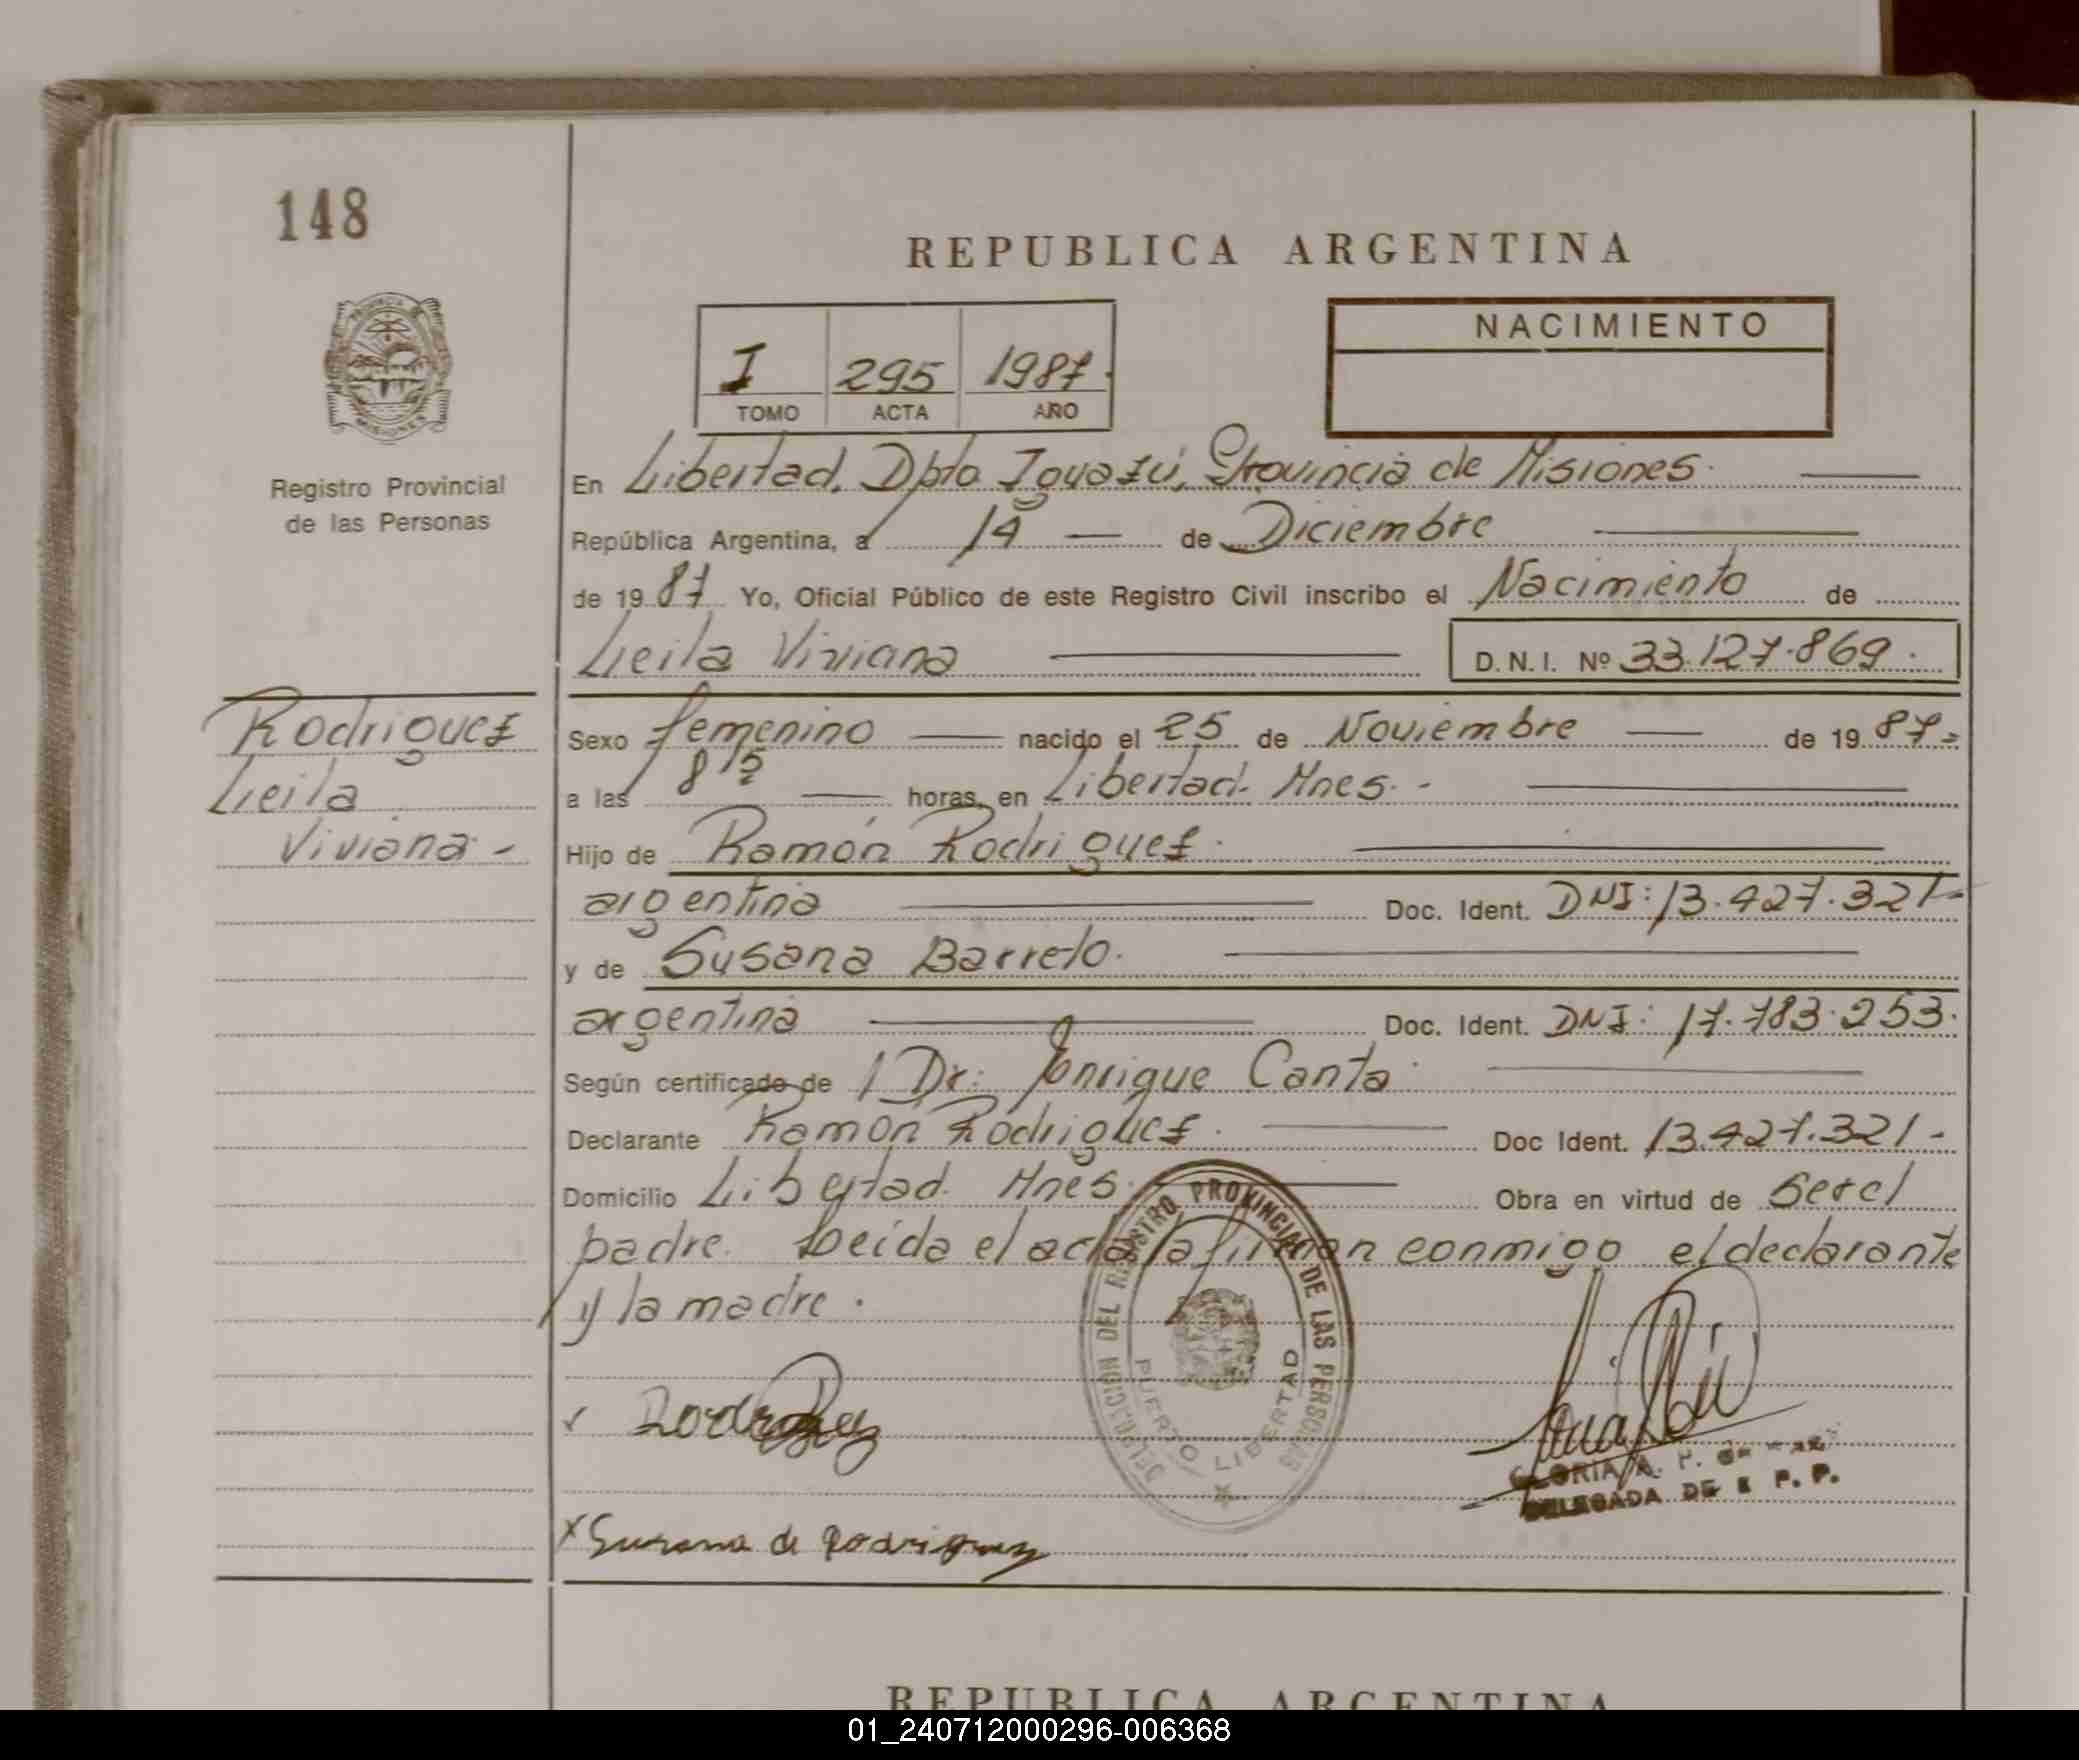 148
REPUBLICA ARGENTINA
NACIMIENTO
I 295 1987.
TOMO ACTA AÑO
Registro Provincial
de las Personas
En Libertad, Dpto Iguazú, Provincia de Misiones.
República Argentina, a 14 — de Diciembre
de 19 87 Yo, Oficial Público de este Registro Civil inscribo el Nacimiento de
Leila Viviana D.N.I. Nº 33.127.869.
Rodriguez
Leila
Viviana -
Sexo femenino — nacido el 25 de Noviembre — de 19 87-
a las 8 15 — horas, en Libertad. Mnes. -
Hijo de Ramón Rodriguez.
argentina Doc. Ident. DNI: 13.427.321-
y de Susana Barreto.
argentina Doc. Ident. DNI: 17.783.253.
Según certificado de 1 Dr: Enrique Canta
Declarante Ramón Rodriguez. Doc Ident. 13.427.321-
Domicilio Libertad. Mnes. Obra en virtud de Ser el
padre. Leida el acta la firman conmigo el declarante
y la madre.
DELEGACION DEL REGISTRO PROVINCIAL DE LAS PERSONAS
PUERTO LIBERTAD
Rodriguez
GLORIA A. P.
DELEGADA DE R P. P.
x Susana de Rodriguez
PROVINCIA DE
MISIONES
REPUBLICA ARGENTINA
01_240712000296-006368